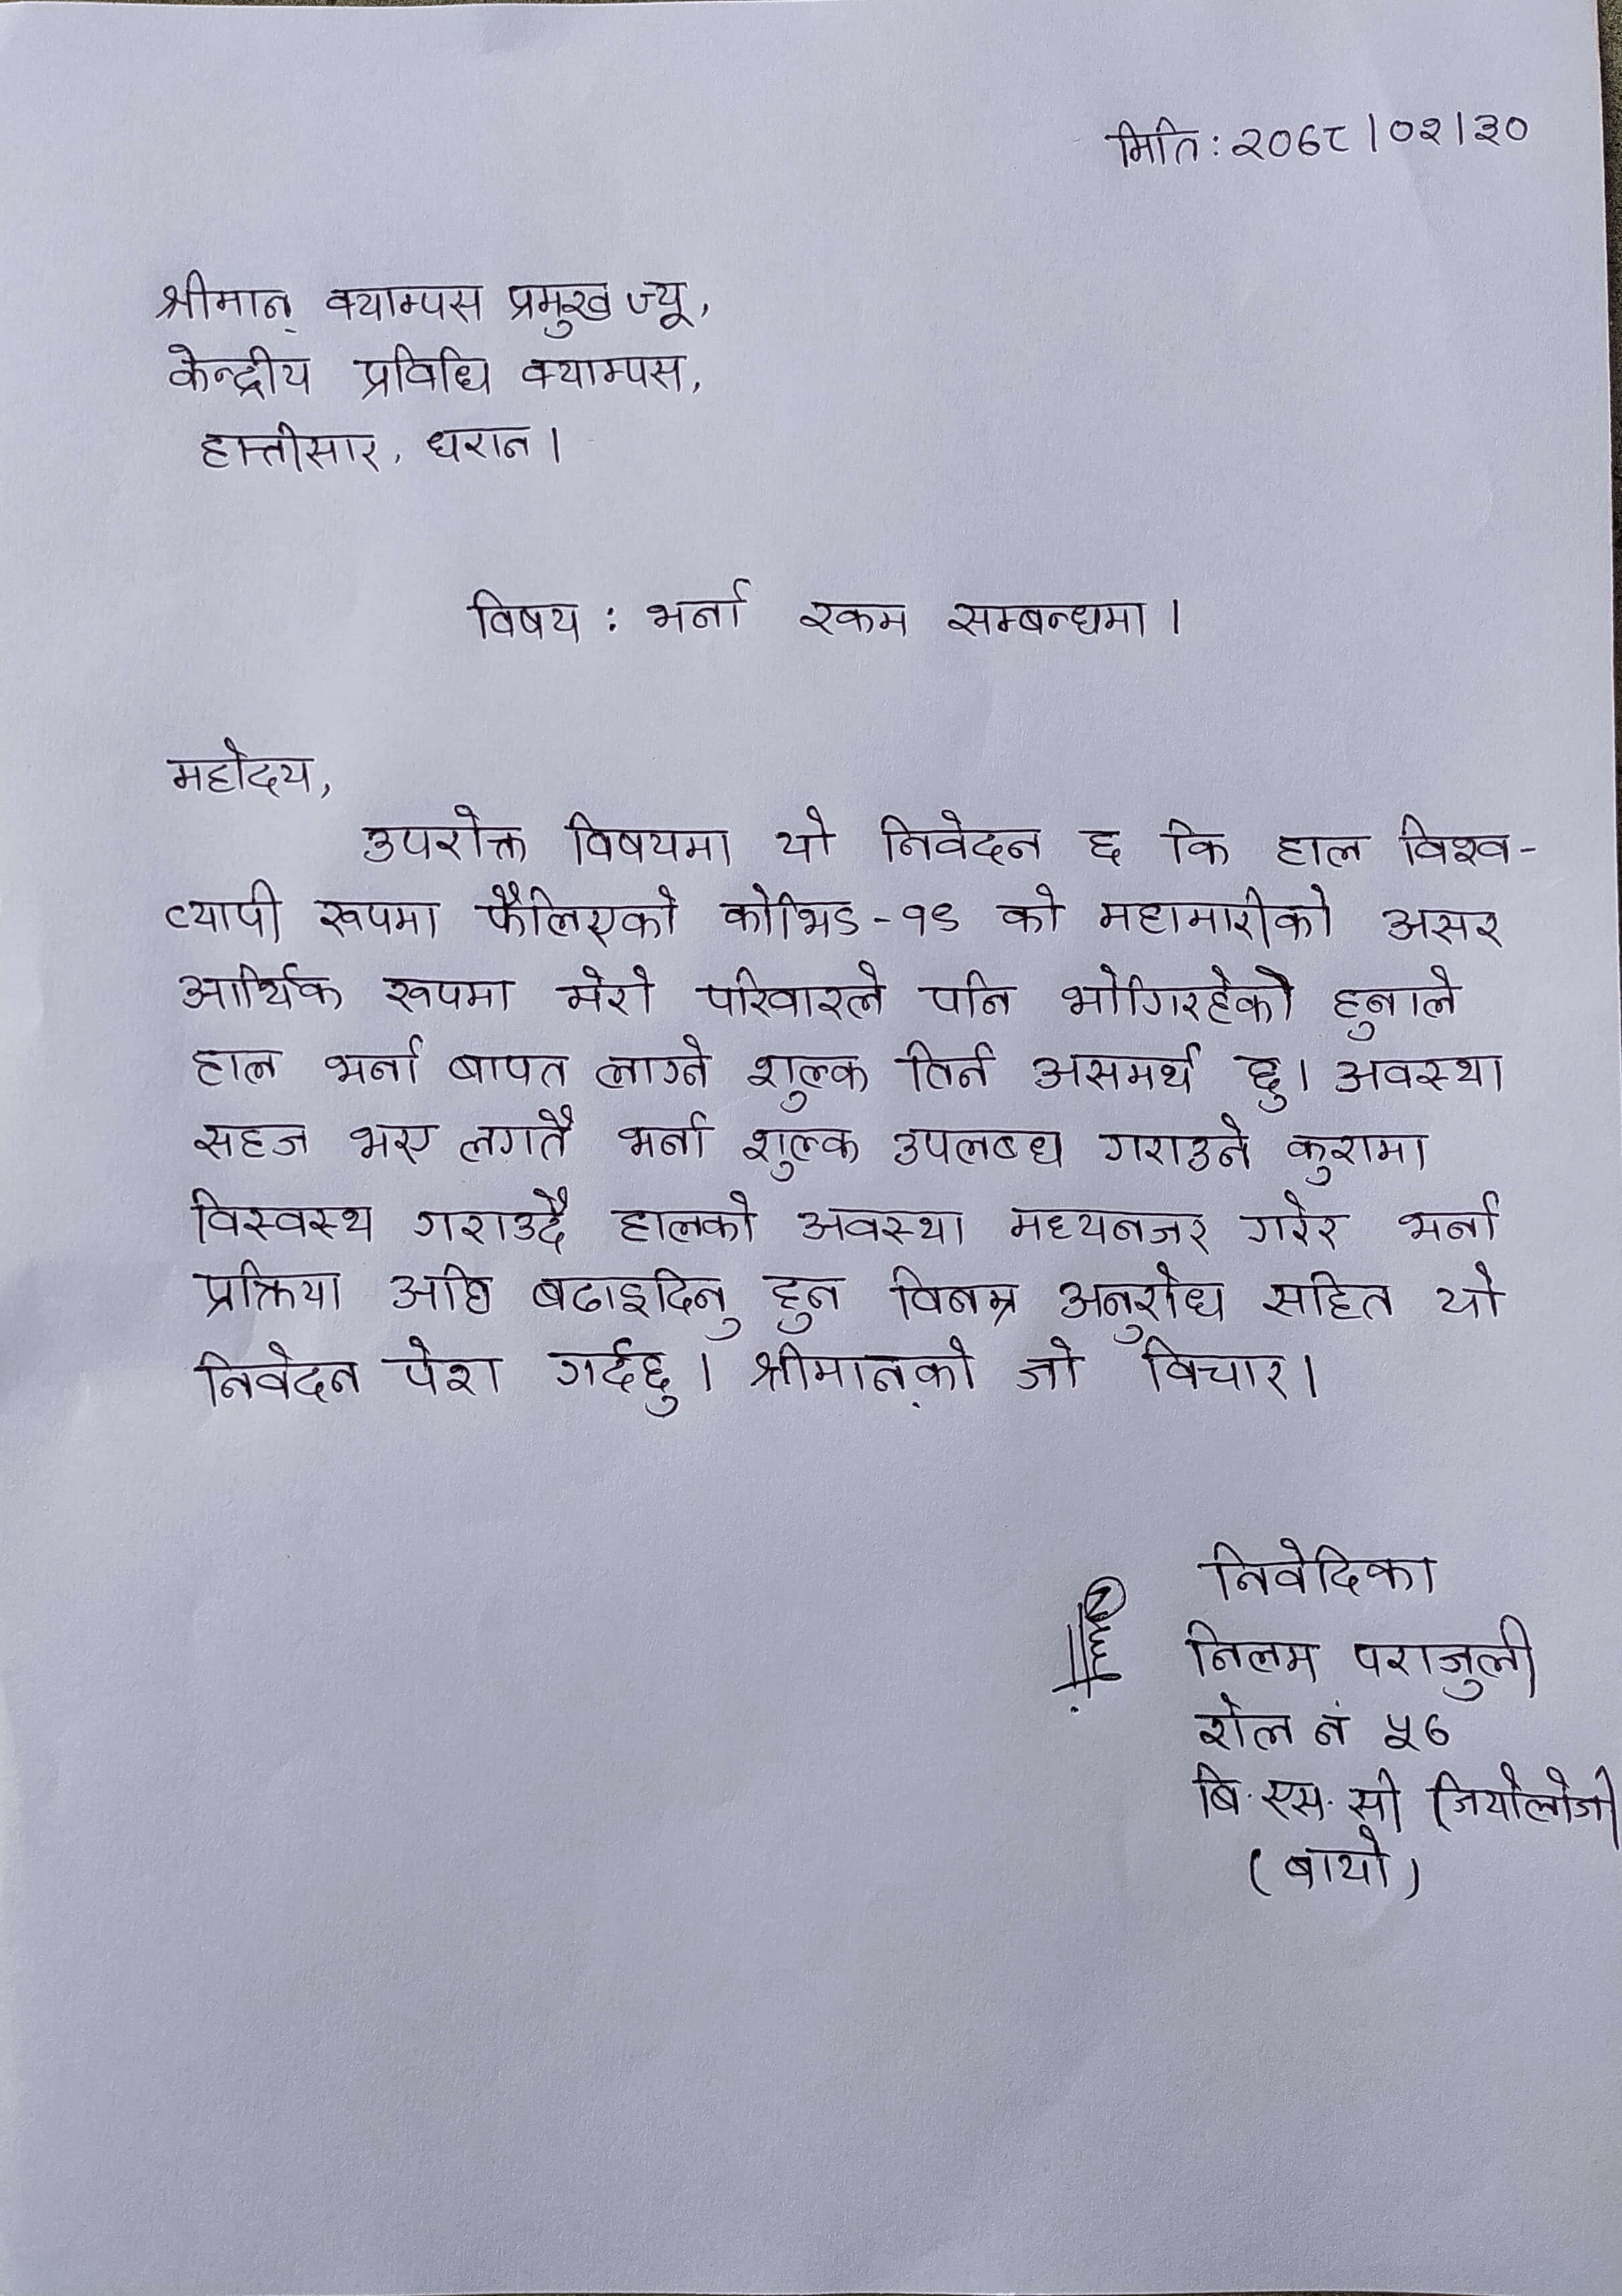 मिति : २०७८।०२।३०
श्रीमान् क्याम्पस प्रमुख ज्यू,
केन्द्रीय प्रविधि क्याम्पस,
हात्तीसार, धरान।
विषय : भर्ना रकम सम्बन्धमा।
महोदय,
उपरोक्त विषयमा यो निवेदन छ कि हाल विश्व-
व्यापी रूपमा फैलिएको कोभिड-१९ को महामारीको असर
आर्थिक रूपमा मेरो परिवारले पनि भोगिरहेको हुनाले
हाल भर्ना बापत लाग्ने शुल्क तिर्न असमर्थ छु। अवस्था
सहज भए लगतै भर्ना शुल्क उपलब्ध गराउने कुरामा
विस्वस्थ गराउदै हालको अवस्था मध्यनजर गरेर भर्ना
प्रक्रिया अघि बढाइदिनु हुन विनम्र अनुरोध सहित यो
निवेदन पेश गर्दछु। श्रीमान्को जो विचार।
निवेदिका
निलम पराजुली
रोल नं ५७
बि.एस.सी जियोलोजी
(बायो)